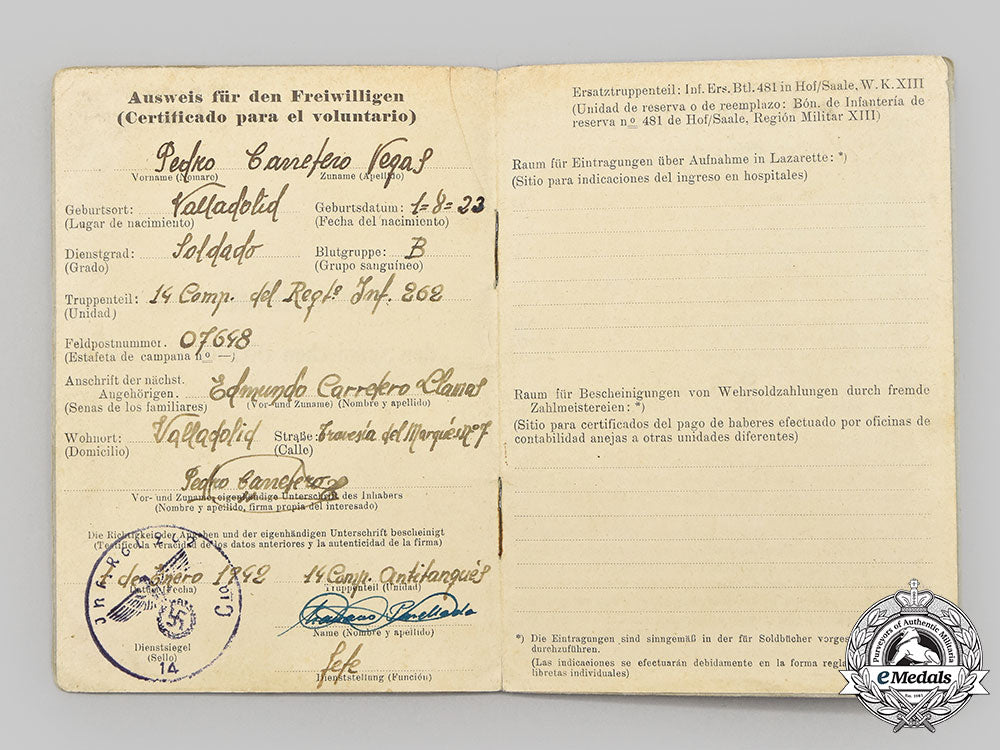 Ausweis für den Freiwilligen
(Certificado para el voluntario)
Pedro Carretero Vegas
Vorname (Nomare) Zuname (Apellido)
Geburtsort: Valladolid Geburtsdatum: 1=8=23
(Lugar de nacimiento) (Fecha del nacimiento)
Dienstgrad: Soldado Blutgruppe: B
(Grado) (Grupo sanguíneo)
Truppenteil: 14 Comp. del Regtº Inf. 262
(Unidad)
Feldpostnummer. 07648
(Estafeta de campana nº —)
Anschrift der nächst.
Angehörigen. Edmundo Carretero Llamas
(Senas de los familiares) (Vor- und Zuname) (Nombre y apellido)
Wohnort: Valladolid Straße: Travesía del Marqués nº 7
(Domicilio) (Calle)
Pedro Carretero
Vor- und Zuname, eigenhändige Unterschrift des Inhabers
(Nombre y apellido, firma propia del interesado)
Die Richtigkeit der Angaben und der eigenhändigen Unterschrift bescheinigt
(Testifico la veracidad de los datos anteriores y la autenticidad de la firma)
de Enero 1942 14 Comp. Antitanques
Datum (Fecha) Truppenteil (Unidad)
Name (Nombre y apellido)
Dienstsiegel
(Sello)
14
Jefe
Dienststellung (Función)
Ersatztruppenteil: Inf. Ers. Btl. 481 in Hof/Saale, W. K. XIII
(Unidad de reserva o de reemplazo: Bón. de Infantería de
reserva nº 481 de Hof/Saale, Región Militar XIII)
Raum für Eintragungen über Aufnahme in Lazarette: *)
(Sitio para indicaciones del ingreso en hospitales)
Raum für Bescheinigungen von Wehrsoldzahlungen durch fremde
Zahlmeistereien: *)
(Sitio para certificados del pago de haberes efectuado por oficinas de
contabilidad anejas a otras unidades diferentes)
*) Die Eintragungen sind sinngemäß in der für Soldbücher vorges
durchzuführen.
(Las indicaciones se efectuarán debidamente en la forma regla
libretas individuales)
Purveyors of Authentic Militaria
eMedals